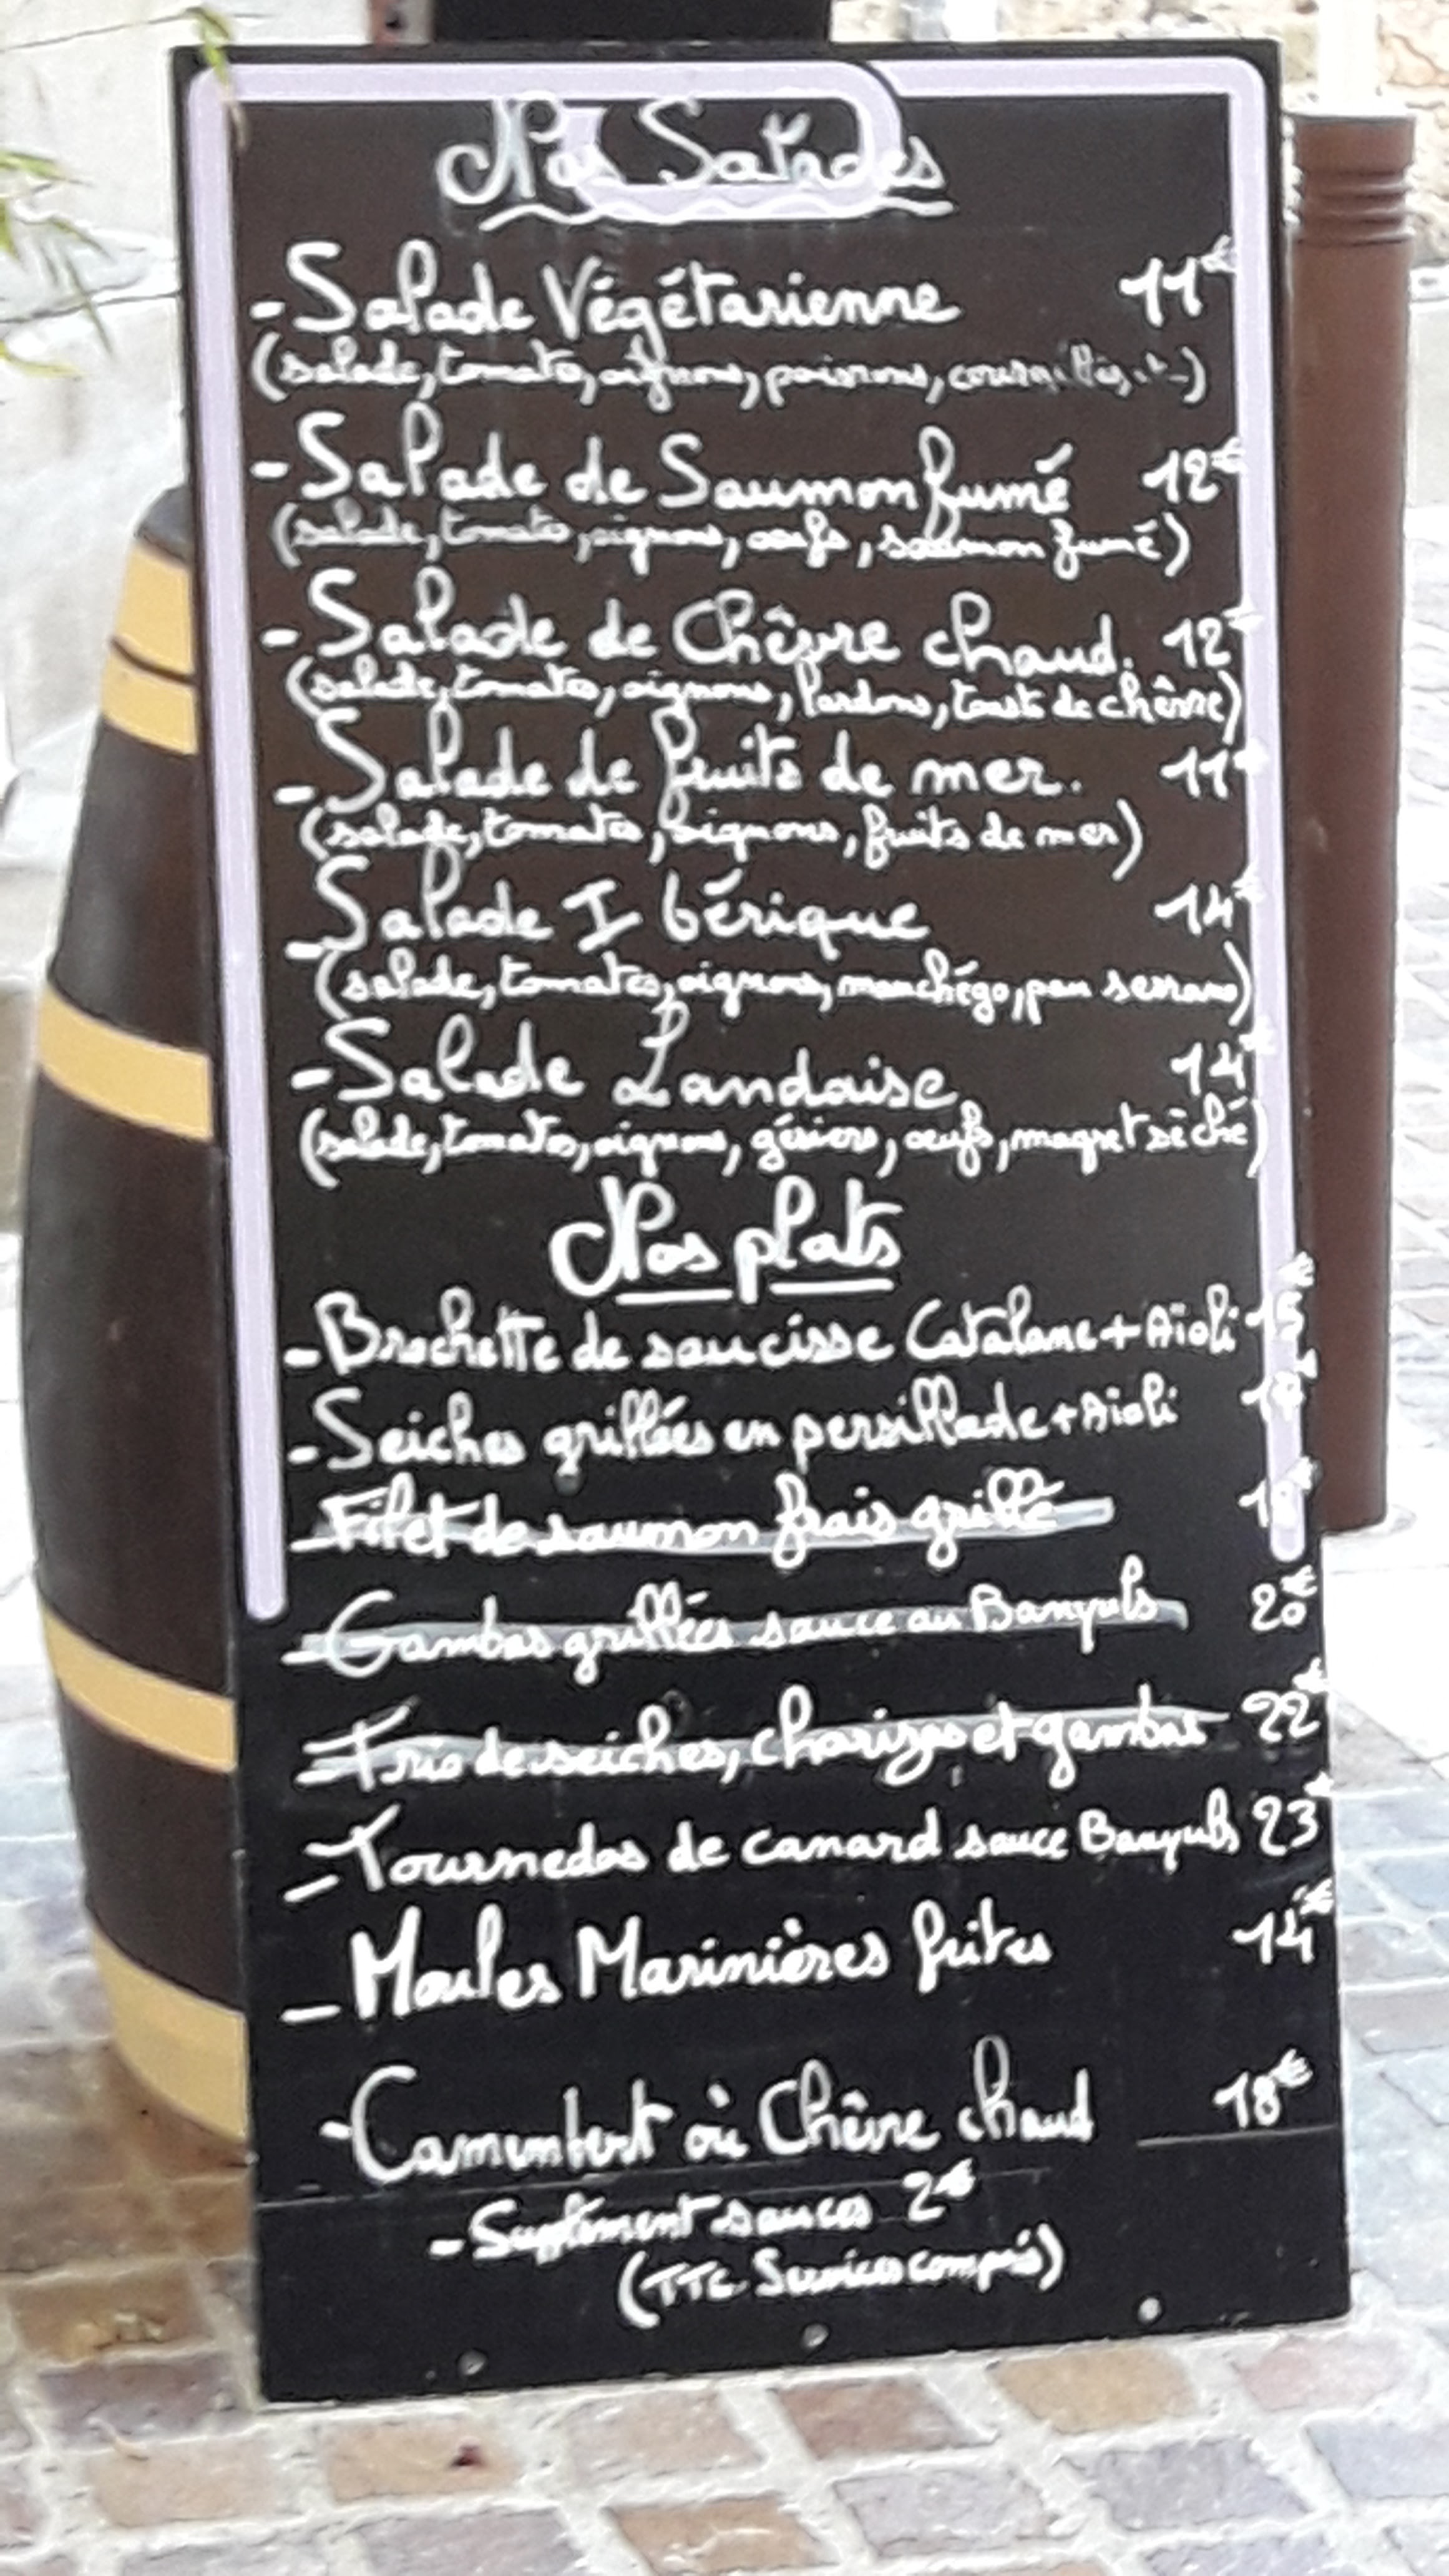 Nos Salades
- Salade Végétarienne 11€
(salade, tomates, oignons, poivrons,
- Salade de Saumon fumé 12€
(salade, tomates, oignons, oeufs, saumon fumé)
- Salade de Chèvre chaud. 12€
(salade, tomates, oignons, lardons, toast de chèvre)
- Salade de fruits de mer. 11€
(salade, tomates, oignons, fruits de mer)
- Salade Ibérique 14€
(salade, tomates, oignons, manchégo, pan serrano)
- Salade Landaise 14€
(salade, tomates, oignons, gésiers, oeufs, magret sèché)
Nos plats
- Brochette de saucisse Catalane + Aïoli
- Seiches grillées en persillade + Aïoli
- Filet de saumon frais grillé
- Gambas grillées sauce au Banyuls 20€
- Trio de seiches, chorizo et gambas 22€
- Tournedos de canard sauce Banyuls 23€
- Moules Marinières frites 14€
- Camembert où Chèvre chaud 18€
- Suplément sauces 2€
(TTC Services compris)